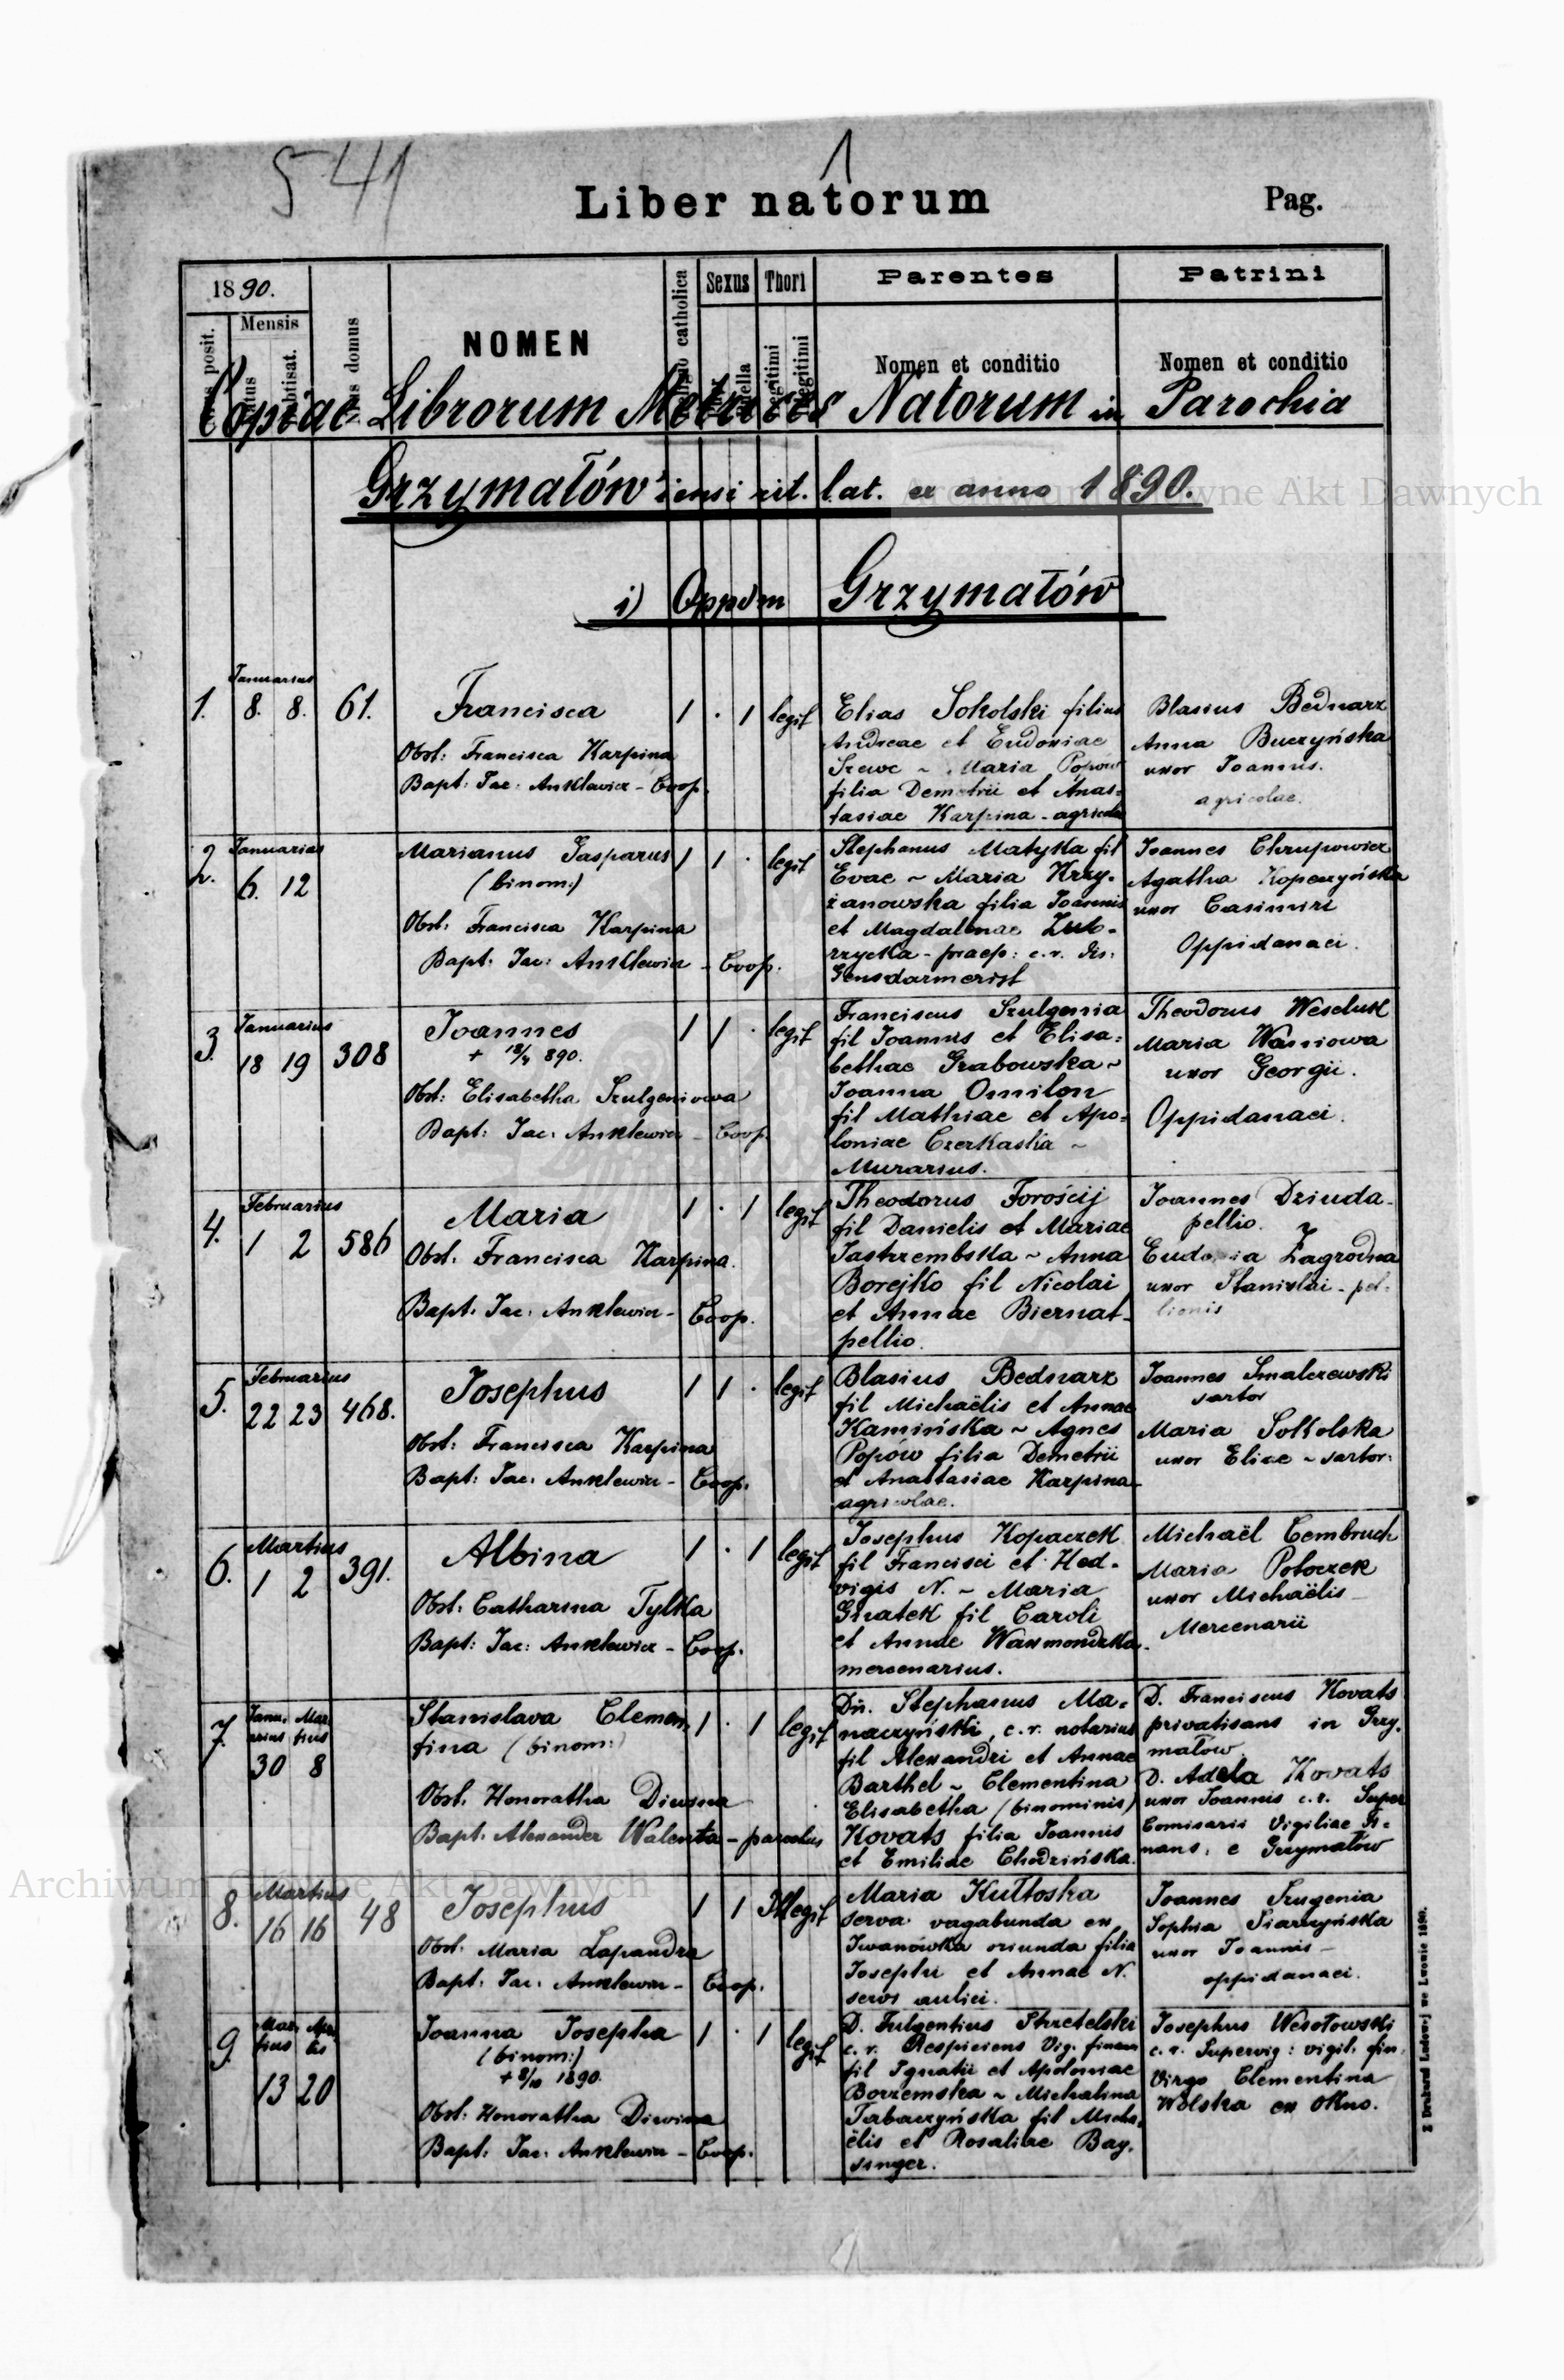 541
1
Liber natorum
Pag.
1890.
Mensis
NOMEN
Sexus
Thori
Parentes
Nomen et conditio
Patrini
Nomen et conditio
Copiae Librorum Metrices Natorum in Parochia
Grzymałów'iensi rit. lat. ex anno 1890.
1) Oppdm Grzymałów
1.
Januarius
8. 8.
61.
Francisca
Obst: Francisca Karpina
Bapt: Jac: Anklewicz - Coop.
1 . 1 legit
Elias Sokolski filius
Andreae et Eudoxiae
Szewc ~ Maria Popow
filia Demetrii et Anas-
tasiae Karpina - agricola
Blasius Bednarz
Anna Buczyńska
uxor Joannis.
agricolae.
2.
Januarius
6. 12
Marianus Gasparus
(binom:)
Obst: Francisca Karpina
Bapt: Jac: Anklewicz - Coop.
1 1 . legit
Stephanus Matyka fil
Evae ~ Maria Krzy-
żanowska filia Joannis
et Magdalenae Zub-
rzycka - praep: c.r.
Gensdarmerist
Joannes Chrupowicz
Agatha Kopczyńska
uxor Casimiri
Oppidanaei.
3.
Januarius
18 19
308
Joannes
+ 18/4 890.
Obst: Elisabetha Szulgeniowa
Bapt: Jac: Anklewicz - Coop.
1 1 . legit
Franciscus Szulgenia
fil Joannis et Elisa-
bethae Grabowska ~
Joanna Omilon
fil Mathiae et Apo-
loniae Czerkaska ~
Murarius.
Theodorus Weseluk
Maria Waniowa
uxor Georgii.
Oppidanaei.
4.
Februarius
1 2
586
Maria
Obst. Francisca Karpina.
Bapt: Jac: Anklewicz - Coop.
1 . 1 legit
Theodorus Forościj
fil Danielis et Mariae
Jastrzembska ~ Anna
Borejko fil Nicolai
et Annae Biernat -
pellio.
Joannes Dziuda -
pellio.
Zagrodna
uxor Stanislai - pel-
lionis
5.
Februarius
22 23
468.
Josephus
Obst: Francisca Karpina
Bapt: Jac: Anklewicz - Coop.
1 1 . legit
Blasius Bednarz
fil Michaëlis et Annae
Kamińska ~ Agnes
Popów filia Demetrii
et Anastasiae Karpina -
agricolae.
Joannes Smalczewski
sartor
Maria Sokolska
uxor Eliae ~ sartor:
6.
Martius
1 2
391.
Albina
Obst: Catharina Tylka
Bapt: Jac: Anklewicz - Coop.
1 . 1 legit
Josephus Kopaczek
fil Francisci et Hed-
vigis N. ~ Maria
Gnatek fil Caroli
et Annae Waxmondzka -
mercenarius.
Michaël Cembruch
Maria Potoczek
uxor Michaëlis -
Mercenarii
7.
Janu- Mar-
arius tius
30 8
Stanislava Clemen-
tina (binom:)
Obst. Honoratha Diusna
Bapt. Alexander Walenta - parochus
1 . 1 legit
Dn. Stephanus Ma-
naczyński, c.r. notarius
fil Alexandri et Annae
Barthel ~ Clementina
Elisabetha (binominis)
Kovats filia Joannis
et Emiliae Chodzińska.
D. Franciscus Kovats
privatisans in Grzy-
małow
D. Adela Kovats
uxor Joannis c.r. Super
Comisarii Vigiliae Fi-
nans. e Grzymałów
8.
Martius
16 16
48
Josephus
Obst. Maria Lapandra
Bapt: Jac: Anklewicz - Coop.
1 1 Illegit
Maria Kułtoska
serva vagabunda ex
Iwanówka oriunda filia
Josephi et Annae N.
servi aulici.
Joannes Szugenia
Sophia Siarzyńska
uxor Joannis -
oppidanaei.
9.
Mar- Apri-
tius lis
13 20
Joanna Josepha
(binom:)
+ 8/10 1890.
Obst: Honoratha Diwina
Bapt: Jac: Anklewicz - Coop.
1 . 1 legit
D. Fulgentius Strzetelski
c.r. Respiciens Vig. finans
fil Ignatii et Apoloniae
Borzemska ~ Michalina
Tabaczyńska fil Micha-
ëlis et Rosaliae Bay-
singer.
Josephus Wesołowski
c.r. Supervig: vigil. fin.
Virgo Clementina
Wolska ex Okno.
Z Drukarni Ludowej we Lwowie 1890.
Archiwum Główne Akt Dawnych
Archiwum Główne Akt Dawnych